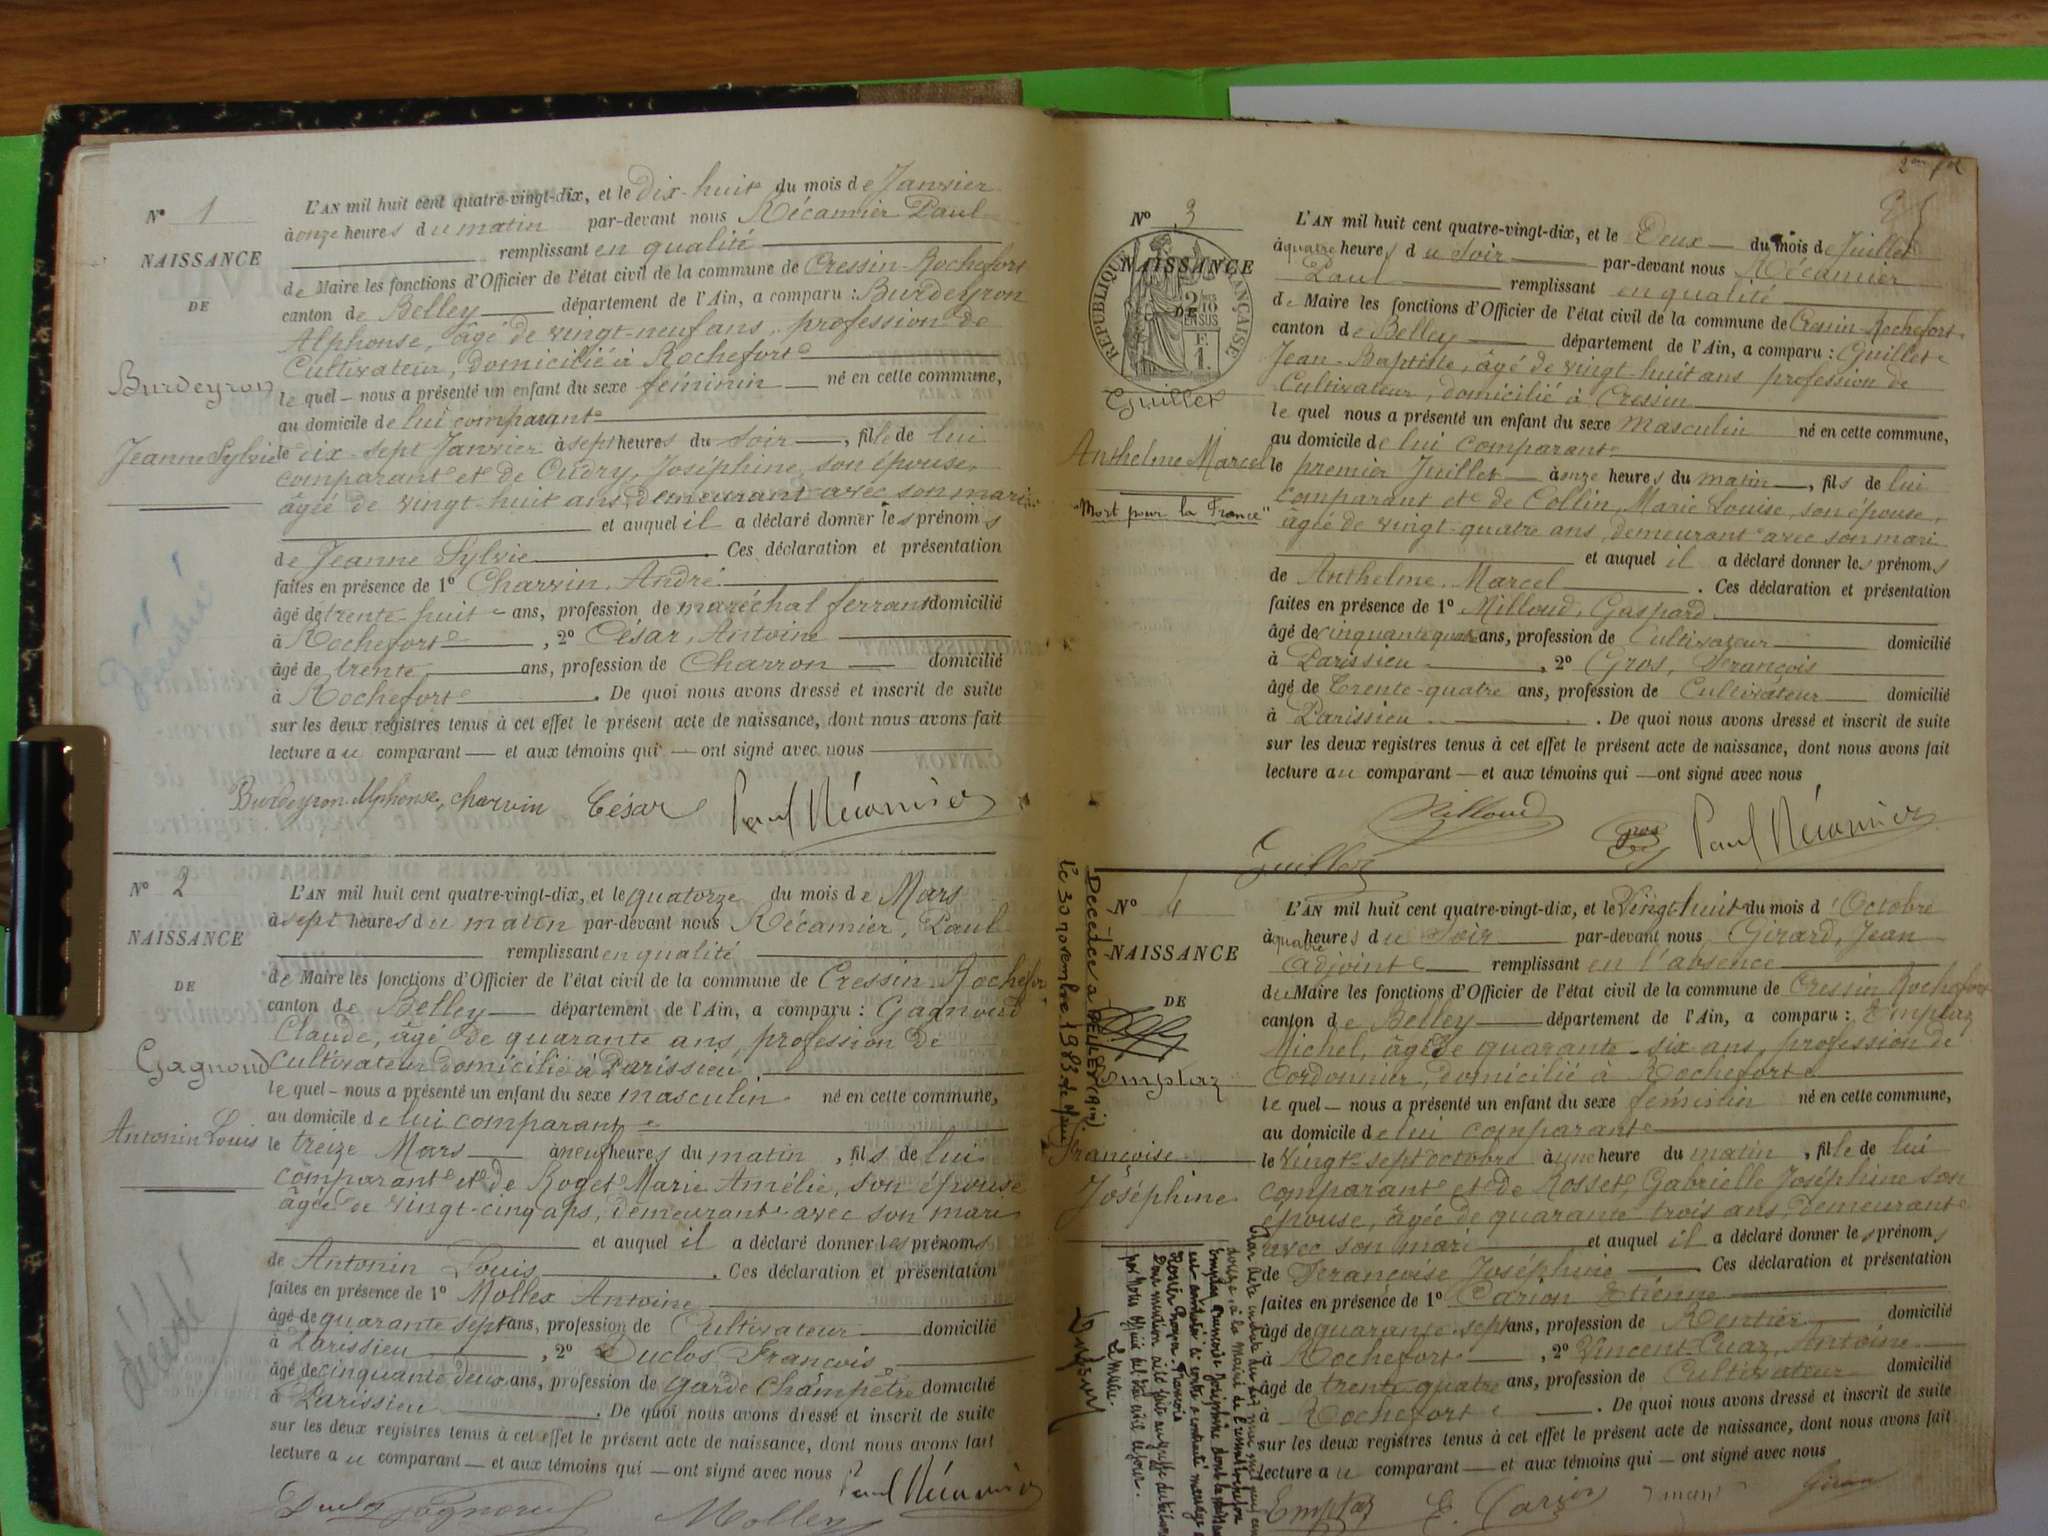 N° 1
NAISSANCE
DE
Burdeyron
Jeanne Sylvie
L'AN mil huit cent quatre-vingt-dix, et le dix-huit du mois de Janvier
à onze heures du matin par-devant nous Récamier Paul
remplissant en qualité
de Maire les fonctions d'Officier de l'état civil de la commune de Cressin-Rochefort
canton de Belley département de l'Ain, a comparu : Burdeyron
Alphonse, âgé de vingt-neuf ans, profession de
Cultivateur, domicilié à Rochefort
le quel nous a présenté un enfant du sexe féminin né en cette commune,
au domicile de lui comparant
le dix-sept Janvier à sept heures du soir, fille de lui
comparant et de Cudry, Joséphine, son épouse,
âgée de vingt-huit ans, demeurant avec son mari
et auquel il a déclaré donner les prénoms
de Jeanne Sylvie. Ces déclaration et présentation
faites en présence de 1° Charvin, André
âgé de trente huit ans, profession de maréchal ferrant domicilié
à Rochefort, 2° César, Antoine
âgé de trente ans, profession de Charron domicilié
à Rochefort. De quoi nous avons dressé et inscrit de suite
sur les deux registres tenus à cet effet le présent acte de naissance, dont nous avons fait
lecture au comparant et aux témoins qui ont signé avec nous
Burdeyron Alphonse, charvin César Paul Récamier
N° 2
NAISSANCE
DE
Gagnoud
Antonin Louis
décédé
L'AN mil huit cent quatre-vingt-dix, et le quatorze du mois de Mars
à sept heures du matin par-devant nous Récamier, Paul
remplissant en qualité
de Maire les fonctions d'Officier de l'état civil de la commune de Cressin Rochefort
canton de Belley département de l'Ain, a comparu : Gagnoud
Claude, âgé de quarante ans, profession de
Cultivateur domicilié à Parissieu
le quel nous a présenté un enfant du sexe masculin né en cette commune,
au domicile de lui comparant
le treize Mars à neuf heures du matin, fils de lui
comparant et de Roget Marie Amélie, son épouse
âgée de vingt-cinq ans, demeurant avec son mari
et auquel il a déclaré donner les prénoms
de Antonin Louis. Ces déclaration et présentation
faites en présence de 1° Mollex Antoine
âgé de quarante sept ans, profession de Cultivateur domicilié
à Parissieu, 2° Duclos François
âgé de cinquante deux ans, profession de garde champêtre domicilié
à Parissieu. De quoi nous avons dressé et inscrit de suite
sur les deux registres tenus à cet effet le présent acte de naissance, dont nous avons fait
lecture au comparant et aux témoins qui ont signé avec nous Paul Récamier
Duclos Gagnoud Mollex
N° 3
NAISSANCE
DE
RÉPUBLIQUE FRANÇAISE
Guillet
Anthelme Marcel
"Mort pour la France"
L'AN mil huit cent quatre-vingt-dix, et le Deux du mois de Juillet
à quatre heures du Soir par-devant nous Récamier
Paul remplissant en qualité
de Maire les fonctions d'Officier de l'état civil de la commune de Cressin-Rochefort
canton de Belley département de l'Ain, a comparu : Guillet
Jean-Baptiste, âgé de vingt-huit ans profession de
Cultivateur, domicilié à Cressin
le quel nous a présenté un enfant du sexe Masculin né en cette commune,
au domicile de lui comparant
le premier Juillet à onze heures du matin, fils de lui
comparant et de Collin, Marie Louise, son épouse,
âgée de vingt-quatre ans, demeurant avec son mari
et auquel il a déclaré donner les prénoms
de Anthelme, Marcel. Ces déclaration et présentation
faites en présence de 1° Milloud, Gaspard
âgé de cinquante quatre ans, profession de Cultivateur domicilié
à Parissieu, 2° Gros, François
âgé de Trente-quatre ans, profession de Cultivateur domicilié
à Parissieu. De quoi nous avons dressé et inscrit de suite
sur les deux registres tenus à cet effet le présent acte de naissance, dont nous avons fait
lecture au comparant et aux témoins qui ont signé avec nous
Milloud Gros Paul Récamier
Guillet
N° 4
NAISSANCE
DE
Emptaz
Françoise
Joséphine
Décédée à BELLEY (Ain)
le 30 novembre 1983
L'AN mil huit cent quatre-vingt-dix, et le Vingt-huit du mois d'Octobre
à quatre heures du Soir par-devant nous Girard, Jean
Adjoint remplissant en l'absence
du Maire les fonctions d'Officier de l'état civil de la commune de Cressin Rochefort
canton de Belley département de l'Ain, a comparu : Emptaz
Michel, âgé de quarante-six ans, profession de
Cordonnier, domicilié à Rochefort
le quel nous a présenté un enfant du sexe féminin né en cette commune,
au domicile de lui comparant
le vingt-sept octobre à une heure du matin, fille de lui
comparant et de Rosset, Gabrielle Joséphine son
épouse, âgée de quarante trois ans, demeurant
avec son mari et auquel il a déclaré donner les prénoms
de Françoise Joséphine Ces déclaration et présentation
faites en présence de 1° Carion Etiénne
âgé de quarante-sept ans, profession de Rentier domicilié
à Rochefort, 2° Vincent-Cuaz, Antoine
âgé de trente-quatre ans, profession de Cultivateur domicilié
à Rochefort. De quoi nous avons dressé et inscrit de suite
sur les deux registres tenus à cet effet le présent acte de naissance, dont nous avons fait
lecture au comparant et aux témoins qui ont signé avec nous
Emptaz E. Carion Girard